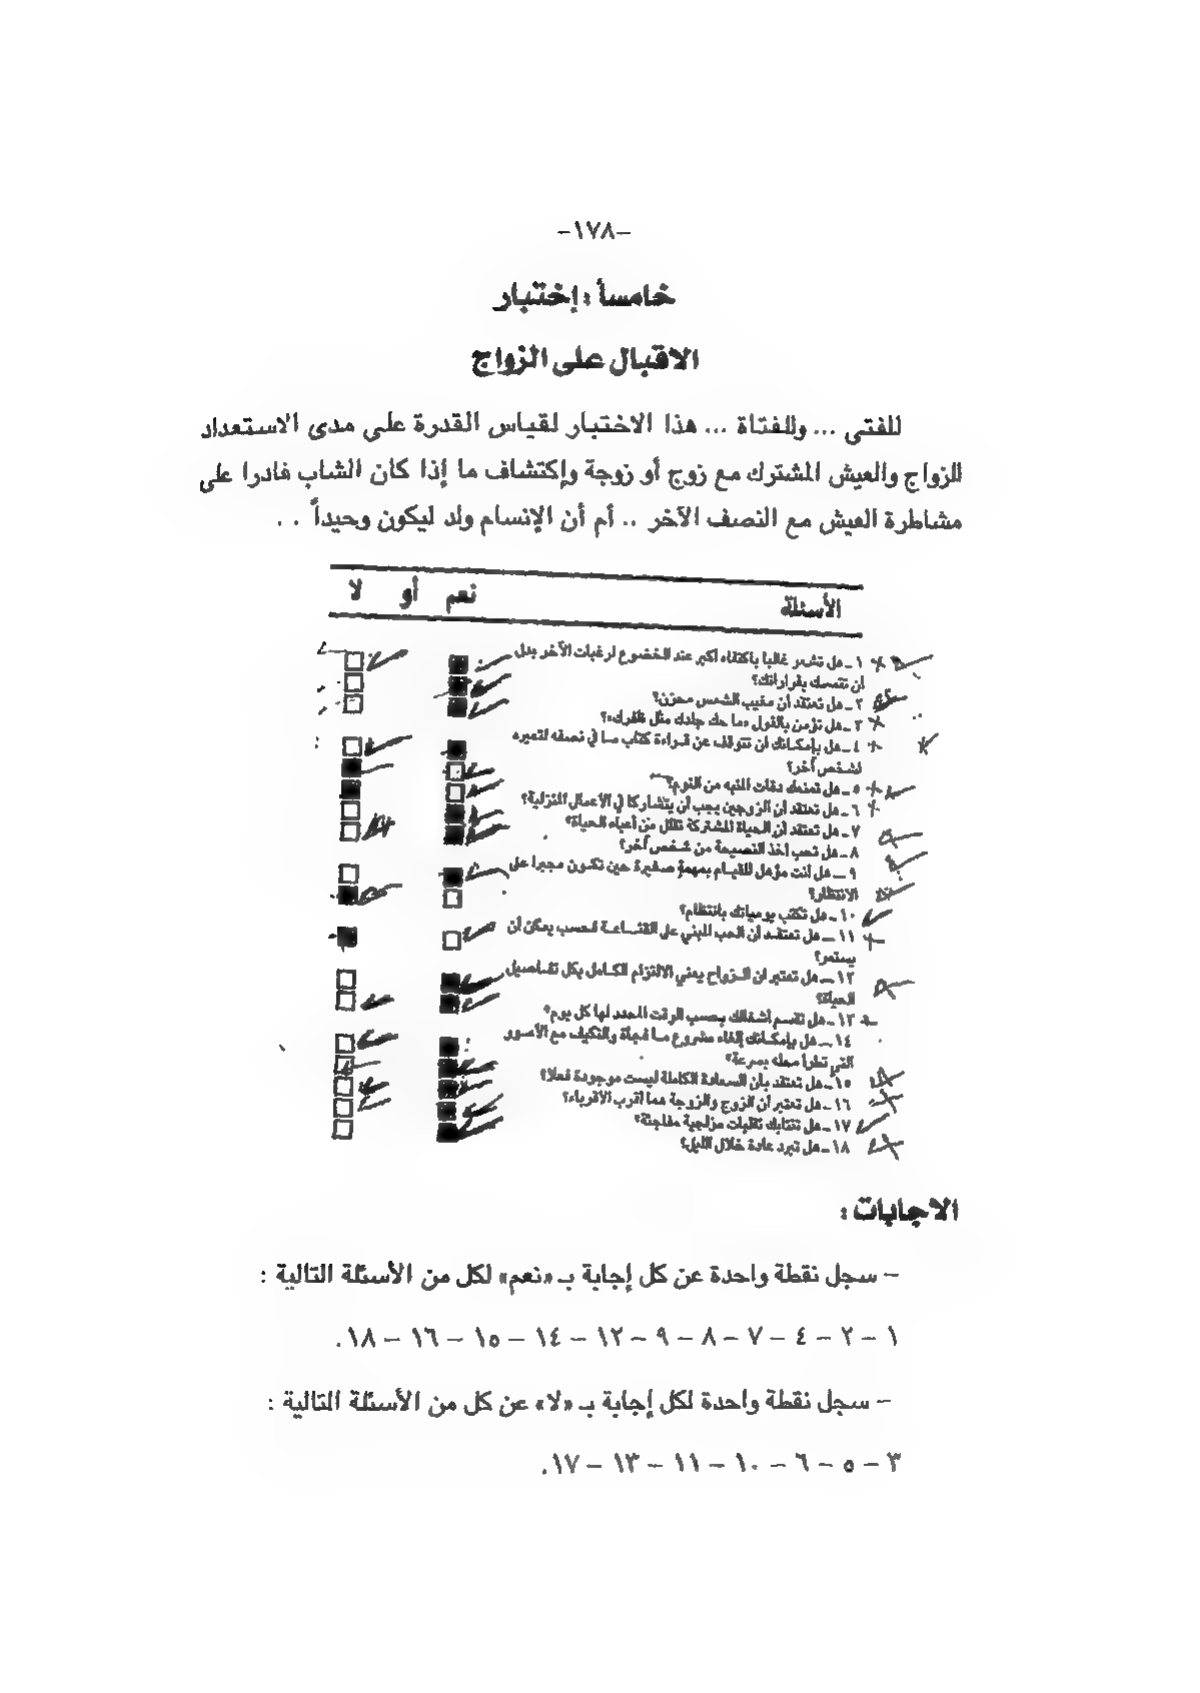 –١٧٨–
خامسأ : إختبار
الاقبال على الزواج
للفتى ... وللفتاة ... هذا الاختبار لقياس القدرة على مدى الاستعداد
للزواج والعيش المشترك مع زوج أو زوجة وإكتشاف ما إذا كان الشاب قادرا على
مشاطرة العيش مع النصف الآخر .. أم أن الإنسام ولد ليكون وحيداً . .
الأسئلة نعم أو لا
١ ـ هل تشعر غالبا باكتفاء أكبر عند الخضوع لرغبات الآخر بدل
أن تتمسك بقراراتك؟
٢ ـ هل تعتقد أن مغيب الشمس محزن؟
٣ ـ هل تؤمن بالقول «ما حك جلدك مثل ظفرك»؟
٤ ـ هل بإمكانك ان تتوقف عن قراءة كتاب ما في نصفه لتعيره
لشخص آخر؟
٥ ـ هل تمنعك دقات المنبه من النوم؟
٦ ـ هل تعتقد ان الزوجين يجب أن يتشاركا في الأعمال المنزلية؟
٧ ـ هل تعتقد أن الحياة المشتركة تقلل من أعباء الحياة؟
٨ ـ هل تحب أخذ النصيحة من شخص آخر؟
٩ ـ هل أنت مؤهل للقيام بمهمة صغيرة حين تكون مجبرا على
الانتظار؟
١٠ ـ هل تكتب يومياتك بانتظام؟
١١ ـ هل تعتقد أن الحب المبني على القناعة فحسب يمكن أن
يستمر؟
١٢ ـ هل تعتبر ان الزواج يعني الالتزام الكامل بكل تفاصيل
الحياة؟
١٣ ـ هل تقسم أشغالك بحسب الوقت المحدد لها كل يوم؟
١٤ ـ هل بإمكانك إلغاء مشروع ما فجأة والتكيف مع الأمور
التي تطرأ محله بسرعة؟
١٥ ـ هل تعتقد بأن السعادة الكاملة ليست موجودة فعلا؟
١٦ ـ هل تعتبر ان الزوج والزوجة هما أقرب الأقرباء؟
١٧ ـ هل تنتابك تقلبات مزاجية مفاجئة؟
١٨ ـ هل تبرد عادة خلال الليل؟
الاجابات :
– سجل نقطة واحدة عن كل إجابة بـ «نعم» لكل من الأسئلة التالية :
١ – ٢ – ٤ – ٧ – ٨ – ٩ – ١٢ – ١٤ – ١٥ – ١٦ – ١٨.
– سجل نقطة واحدة لكل إجابة بـ «لا» عن كل من الأسئلة التالية :
٣ – ٥ – ٦ – ١٠ – ١١ – ١٣ – ١٧.